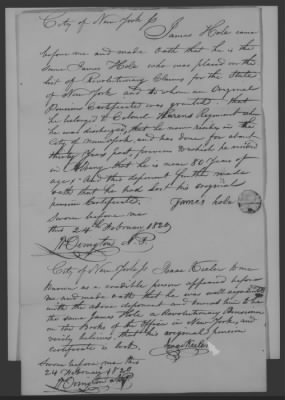 City of New York ss James Hole came
before me and made oath that he is the
same James Hole who was placed on the
list of Revolutionary Claims for the State
of New York and to whom an Original
Pension Certificate was granted that
he belonged to Colonel Regiment when
he was discharged, that he now resides in the
City of New York and has done for about
thirty years past, previous to which he resided
in Albany that he is near 80 Years of
age And this deponent further made
oath that he had lost his original
pension Certificate. James hole
Sworn before me
this 24th February 1820
City of New York ss Isaac Keeler to me
known as a credible person appeared before
me and made oath that he was well acquainted
with the above deponent and knows him to be
the same James Hole a Revolutionary Pensioner
on the Books of the Office in New York, and
verily believes that his original pension
certificate is lost. Isaac Keeler
Sworn before me this
24 February 1820